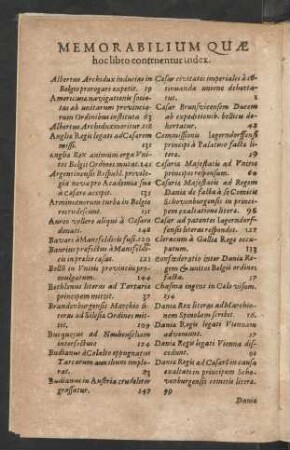 MEMORABILIUM QUÆ
hoc libro continentur index.
Albertus Archidux inducias in
Belgio prorogari expetit. 19
Americanæ navigationis socie-
tas ab unitarum provincia-
rum Ordinibus instituta 63
Albertus Archidux moritur 118
Angliæ Regis legati ad Cæsarem
missi. 131
Angliæ Rex animum erga Vni-
tos Belgii Ordines mutat. 141
Argentinensis Respubl. privile-
gia nova pro Academia sua
à Cæsare accepit. 131
Arminianorum turba in Belgio
recrudescunt. 31
Aurea vellera aliqui à Cæsare
donati. 148
Bavari à Mansfeldicis fusi. 129
Bavaries præfectum à Mansfeldi-
cis in prælio cæsus. 121
Bellū in Vnitis provinciis pro-
mulgatum. 144
Bethlenus literas ad Tartariæ
principem mittit. 37
Brandenburgensis Marchio li-
teras ad Silesiæ Ordines mit-
tit, 109
Bucquous ad Neuheuselium
interficitur 124
Budianus à Colalto oppugnatus
Turcarum auxilium implo-
rat. 23
Budianus in Austria crudeliter
grassatur. 147
Cæsar civitates imperiales à cō-
tinuanda unione dehorta-
tur. 1
Cæsar Brunsvicensem Ducem
ab expeditionib. bellicis de-
hortatur. 42
Commissionis Iagerndorffensis
principi à Palatino facta li-
tera. 39
Cæsareæ Majestatis ad Votum
principis responsum. 60
Cæsareæ Majestatis ad Regem
Daniæ de fusis à se Comitis
Schovvenburgensis in princi-
pem exaltatione literæ. 96
Cæsar ad patentes Iagerndorf-
fensis literas respondet. 127
Cleracum à Galliæ Rege occu-
patum. 133
Confœderatio inter Daniæ Re-
gem & unitos Belgii ordines
facta. 37
Chasma ingens in Cælo visum.
154
Daniæ Rex literas ad Marchio-
nem Spinolam scribit. 16
Daniæ Regis legati Viennam
adveniunt. 17
Daniæ Regis legati Vienna dis-
cedunt. 92
Daniæ Regis ad Cæsarē in causa
exaltationis principum Scho-
vvenburgensis comitis litera.
99
Daniæ